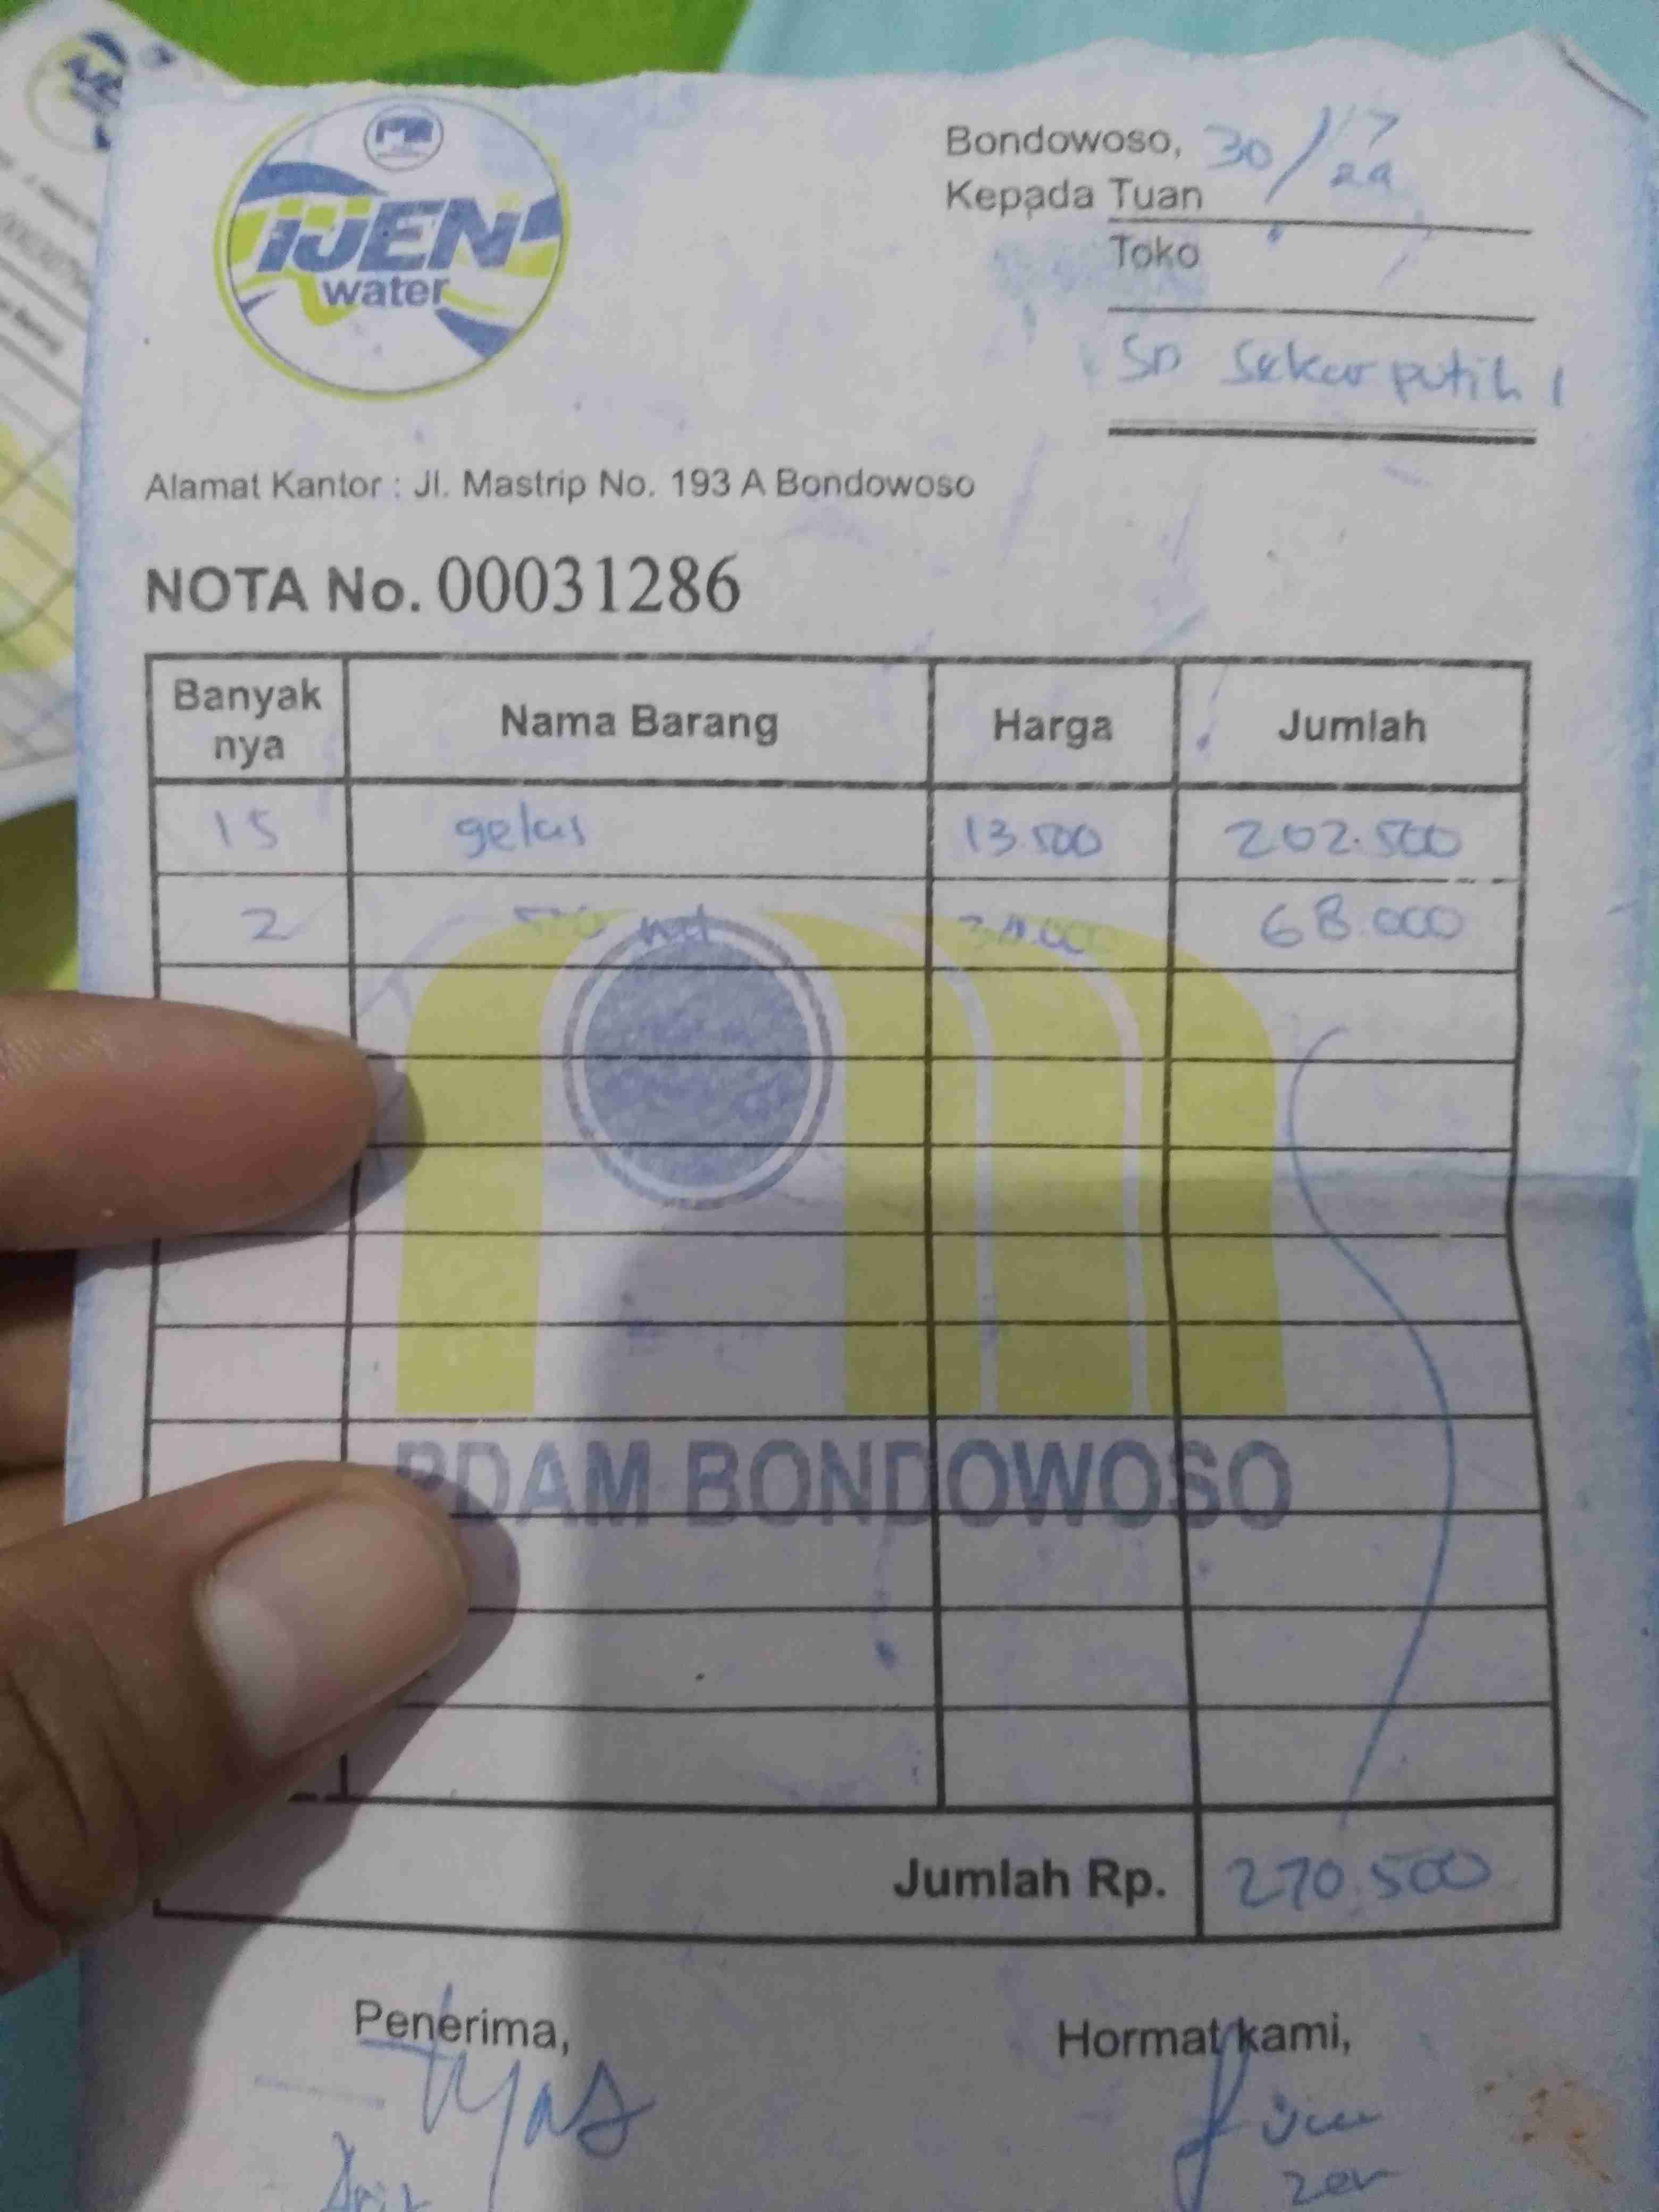 IJEN
water
Bondowoso, 30/7
24
Kepada Tuan
Toko
SD Sekarputih 1
Alamat Kantor : Jl. Mastrip No. 193 A Bondowoso
NOTA No. 00031286
Banyak nya Nama Barang Harga Jumlah
15 gelas 13.500 202.500
2 ml 68.000
PDAM BONDOWOSO
Jumlah Rp. 270.500
Penerima, Hormat kami,
Tyas